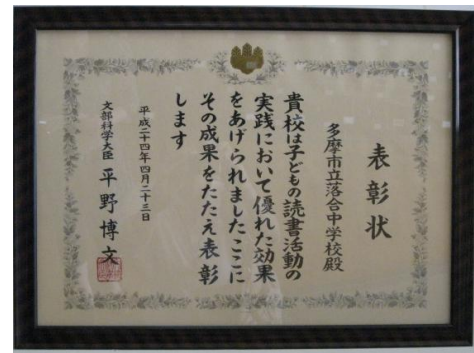 表彰状
多摩市立落合中学校殿
貴校は子どもの読書活動の
実践において優れた効果
をあげられましたここに
その成果をたたえ表彰
します
平成二十四年四月二十三日
文部科学大臣 平野博文